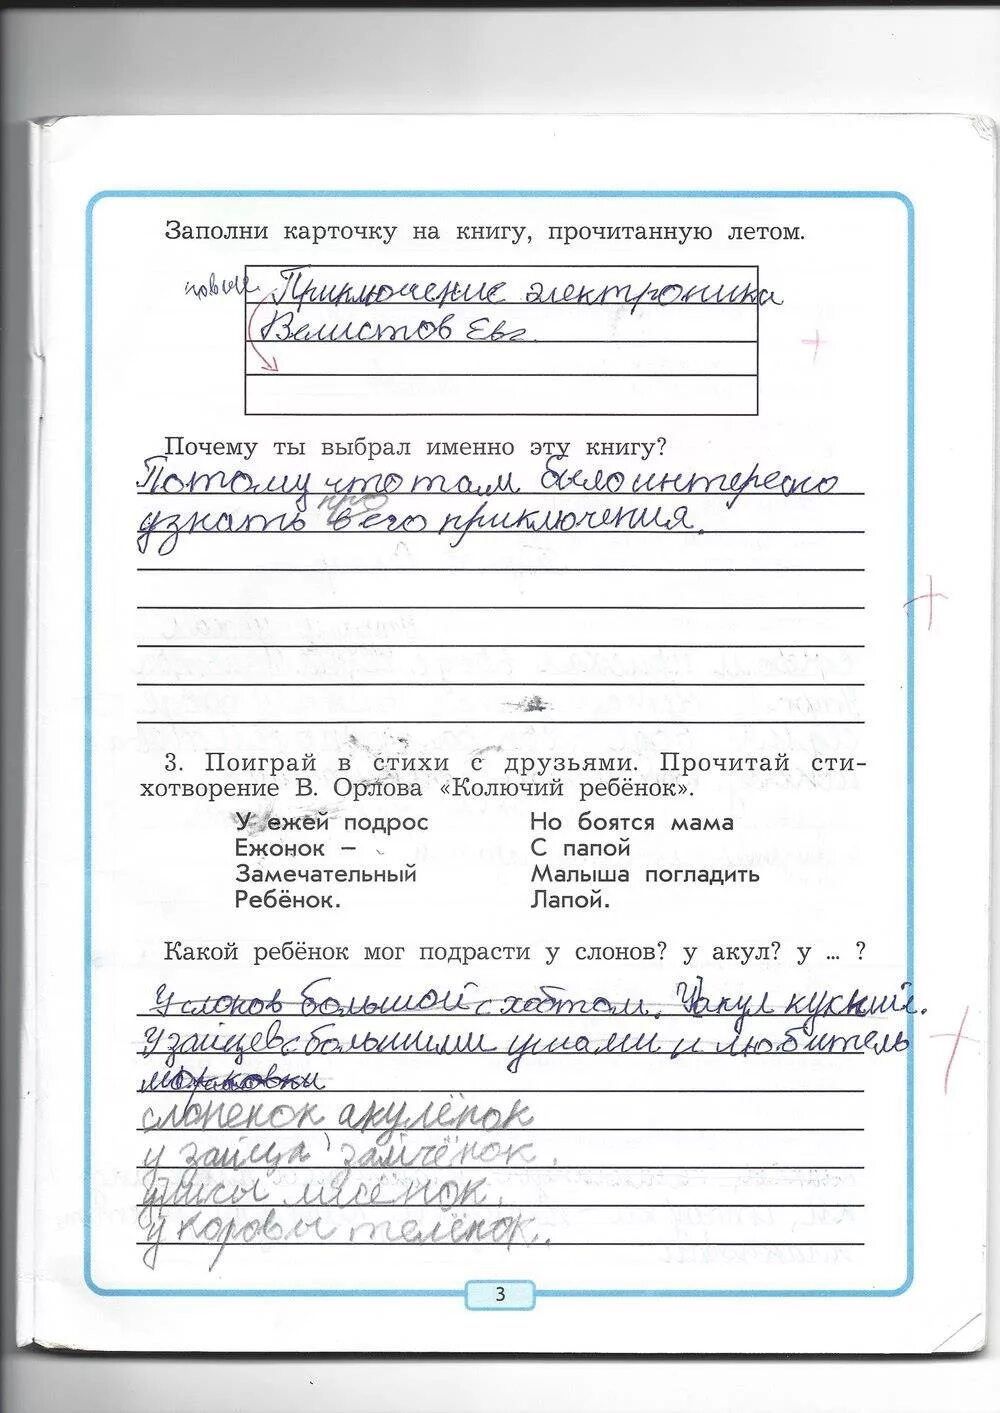 Заполни карточку на книгу, прочитанную летом.
Приключение электроника
Велистов Евг.
Почему ты выбрал именно эту книгу?
Потому что там было интересно
про
узнать в его приключения.
3. Поиграй в стихи с друзьями. Прочитай сти-
хотворение В. Орлова «Колючий ребёнок».
У ежей подрос
Ежонок –
Замечательный
Ребёнок.
Но боятся мама
С папой
Малыша погладить
Лапой.
Какой ребёнок мог подрасти у слонов? у акул? у ... ?
У слонов большой с хоботом. У акул
У зайцев с большими ушами и любитель
морковки
слоненок акулёнок
у зайца зайчёнок.
у лисы лисёнок.
у коровы телёнок..
3